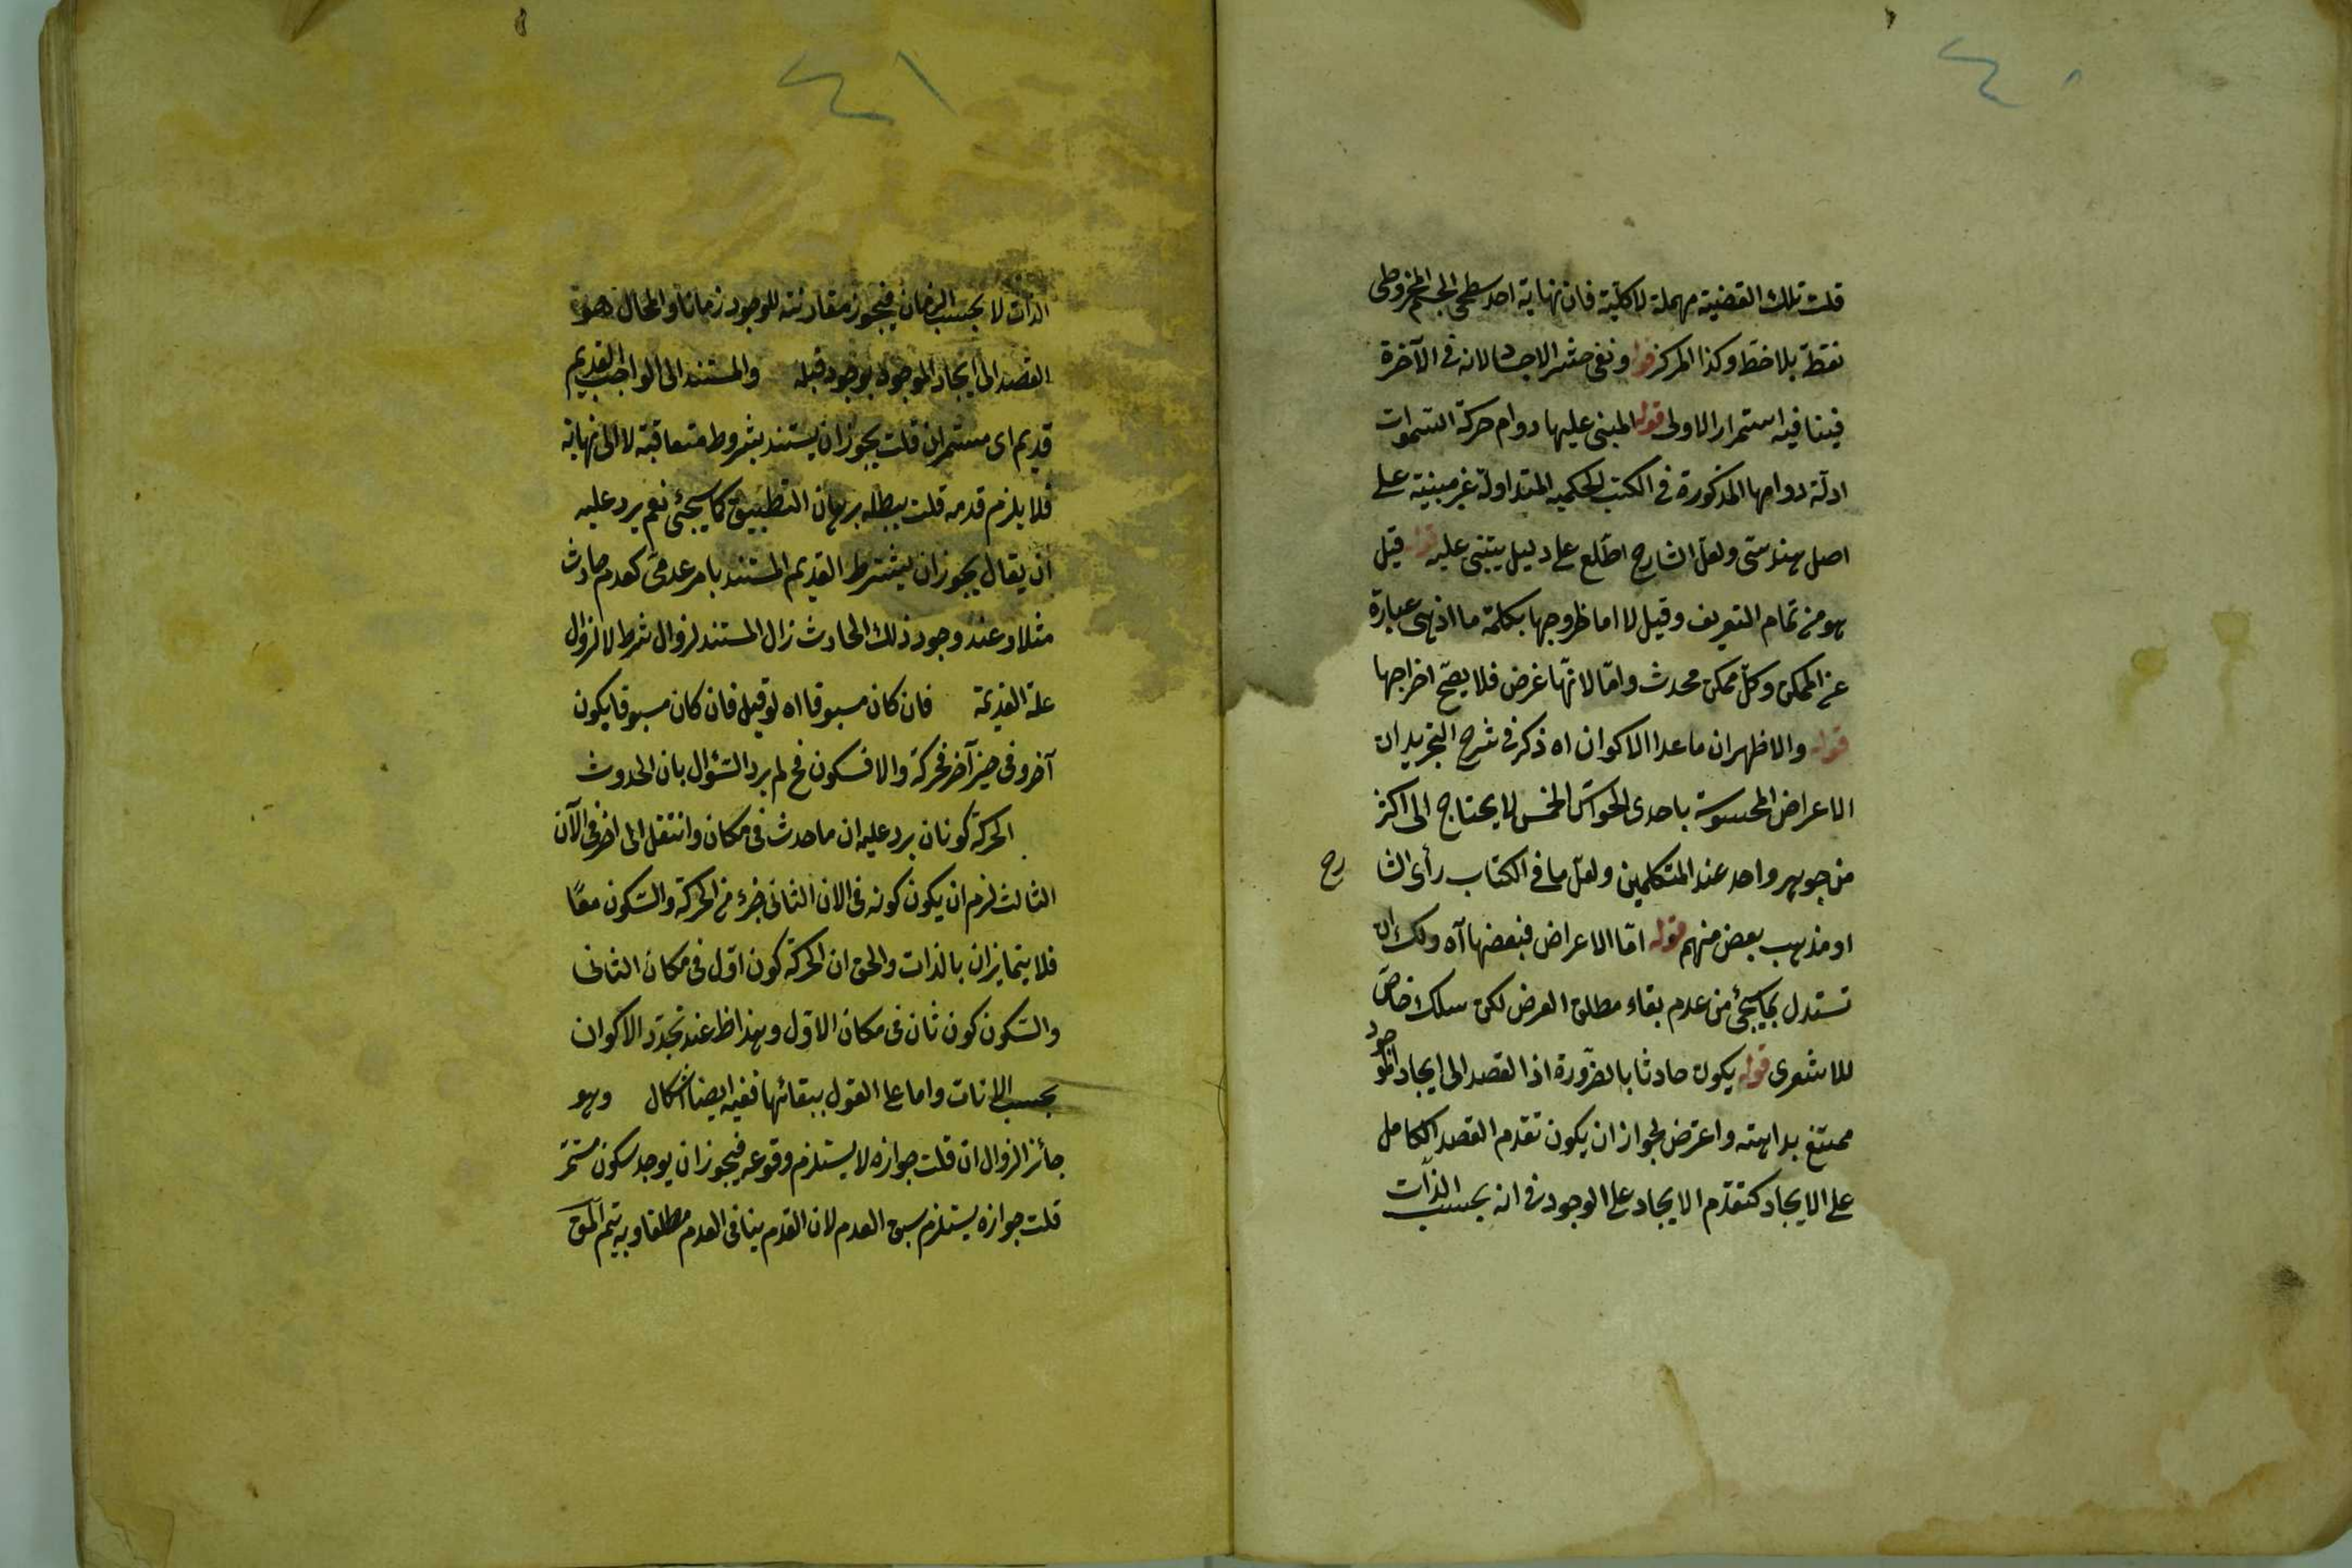 ٤٠
قلت تلك القضية مهملة لا كلية فان نهاية احد سطحى الجسم المخروطى
نقطة بلا خط وكذا المركز قوله ونفى حشر الاجساد لانه فى الآخرة
فينافيه استمرار الاولى قوله المبنى عليها دوام حركة السموات
ادلة دوامها المذكورة فى الكتب الحكمية المتداولة غير مبنية على
اصل هندسى ولعل الشارح اطلع على دليل يبتنى عليه قوله قيل
هو من تمام التعريف وقيل لا اما لخروجها بكلمة ما اذ هى عبارة
عن الممكن وكل ممكن محدث واما لانها عرض فلا يصح اخراجها
قوله والاظهر ان ما عدا الاكوان اه ذكر فى شرح التجريد ان
الاعراض المحسوسة باحدى الحواس الخمس لا يحتاج الى اكثر
من جوهر واحد عند المتكلمين ولعل ما فى الكتاب رأى الشا رح
او مذهب بعض منهم قوله اما الاعراض فبعضها آه ولك ان
تستدل بما سيجئ من عدم بقاء مطلق العرض لكن سلك خاص
للاشعرى قوله يكون حادثا بالضرورة اذ القصد الى ايجاد الموجود
ممتنع بداهته واعترض بجواز ان يكون تقدم القصد الكامل
على الايجاد كتقدم الايجاد على الوجود فى انه بحسب الذات
٤١
الذات لا بحسب الزمان فيجوز مقارنته للوجود زمانا والمحال هو
القصد الى ايجاد الموجود بوجود قبله والمستند الى الواجب القديم
قديم اى مستمر ان قلت يجوز ان يستند بشروط متعاقبة لا الى نهاية
فلا يلزم قدمه قلت يبطله برهان التطبيق كما سيجئ نعم يرد عليه
ان يقال يجوز ان يشترط القديم المستند بامر عدمى كعدم حادث
مثلا وعند وجود ذلك الحادث زال المستند لزوال شرط لا لزوال
علة القديمة فان كان مسبوقا اه لو قيل فان كان مسبوقا بكون
آخر وفى حيز آخر فحركة والا فسكون فح لم يرد السؤال بان الحدوث
الحركة كونان يرد عليه ان ما حدث فى مكان وانتقل الى اخر فى الآن
الثالث لزم ان يكون كونه فى الان الثانى جزء من الحركة والسكون معًا
فلا يتمايزان بالذات والحق ان الحركة كون اول فى مكان الثانى
والسكون كون ثان فى مكان الاول وهذا ظ عند تجدد الاكوان
بحسب الانات واما على القول ببقائها ففيه ايضا اشكال وهو
جائز الزوال ان قلت جوازه لا يستلزم وقوعه فيجوز ان يوجد سكون مستمر
قلت جوازه يستلزم سبق العدم لان القدم ينافى العدم مطلقا وبه يتم المق